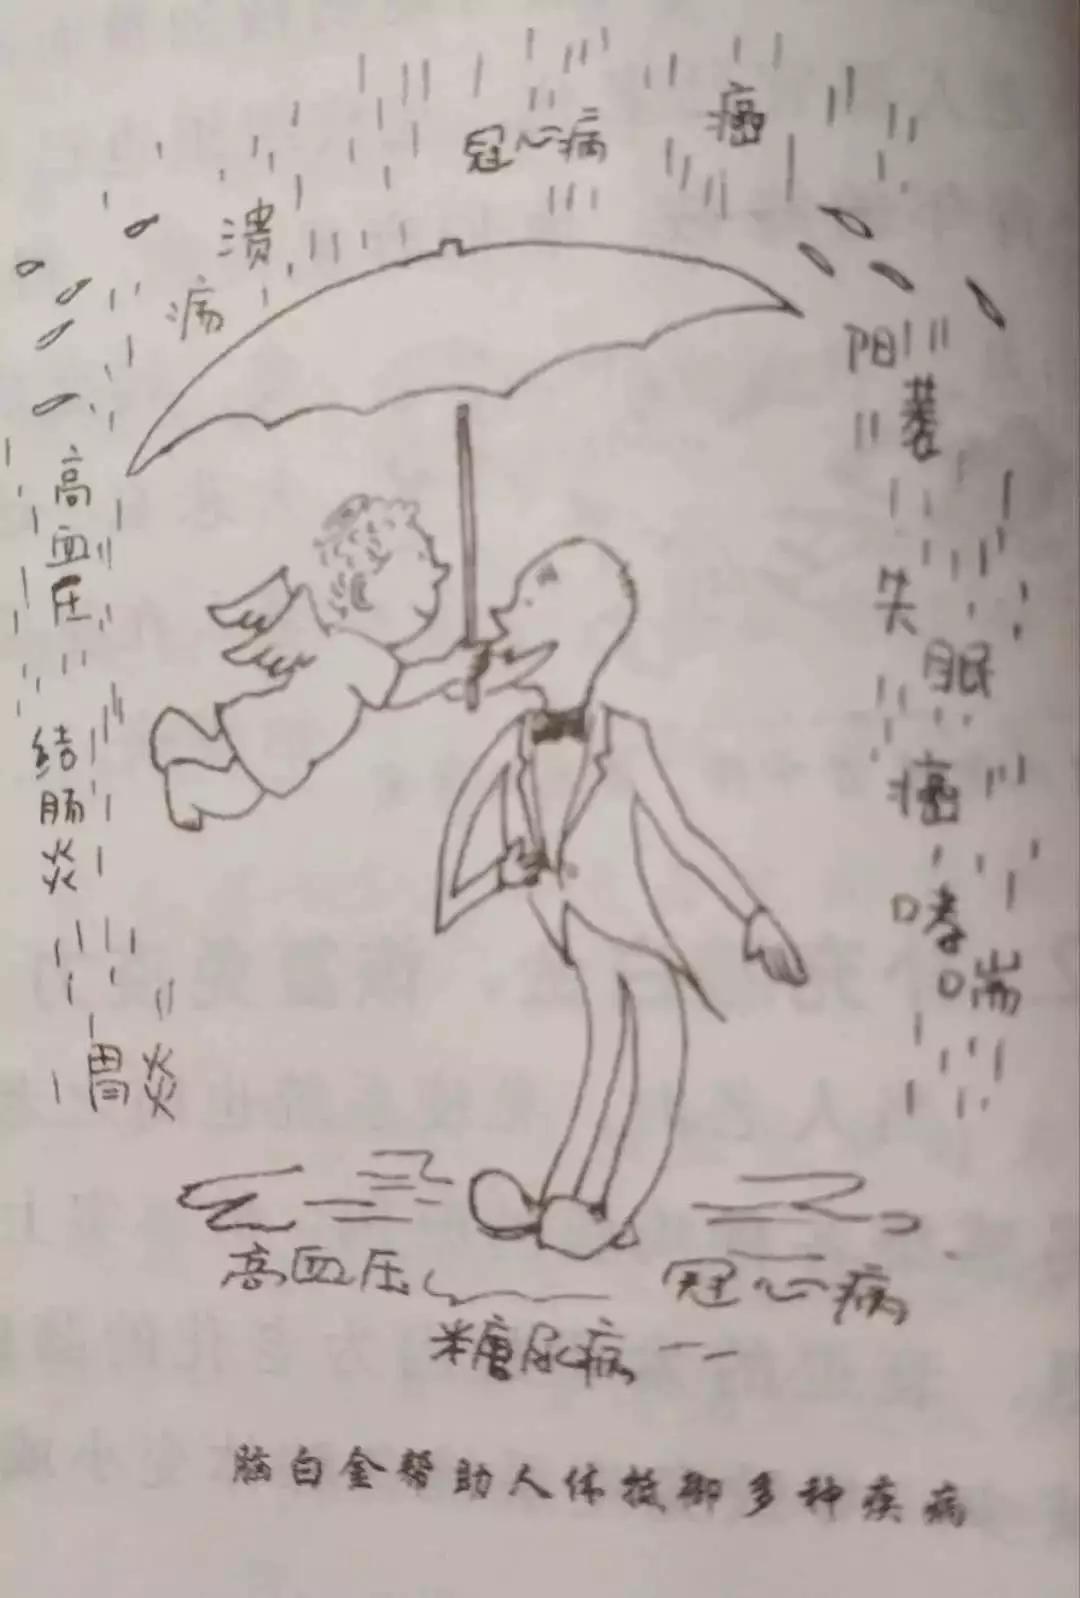 冠心病
癌
溃疡
高血压
结肠炎
胃炎
阳萎
失眠
癌
哮喘
高血压
冠心病
糖尿病
脑白金帮助人体抵御多种疾病